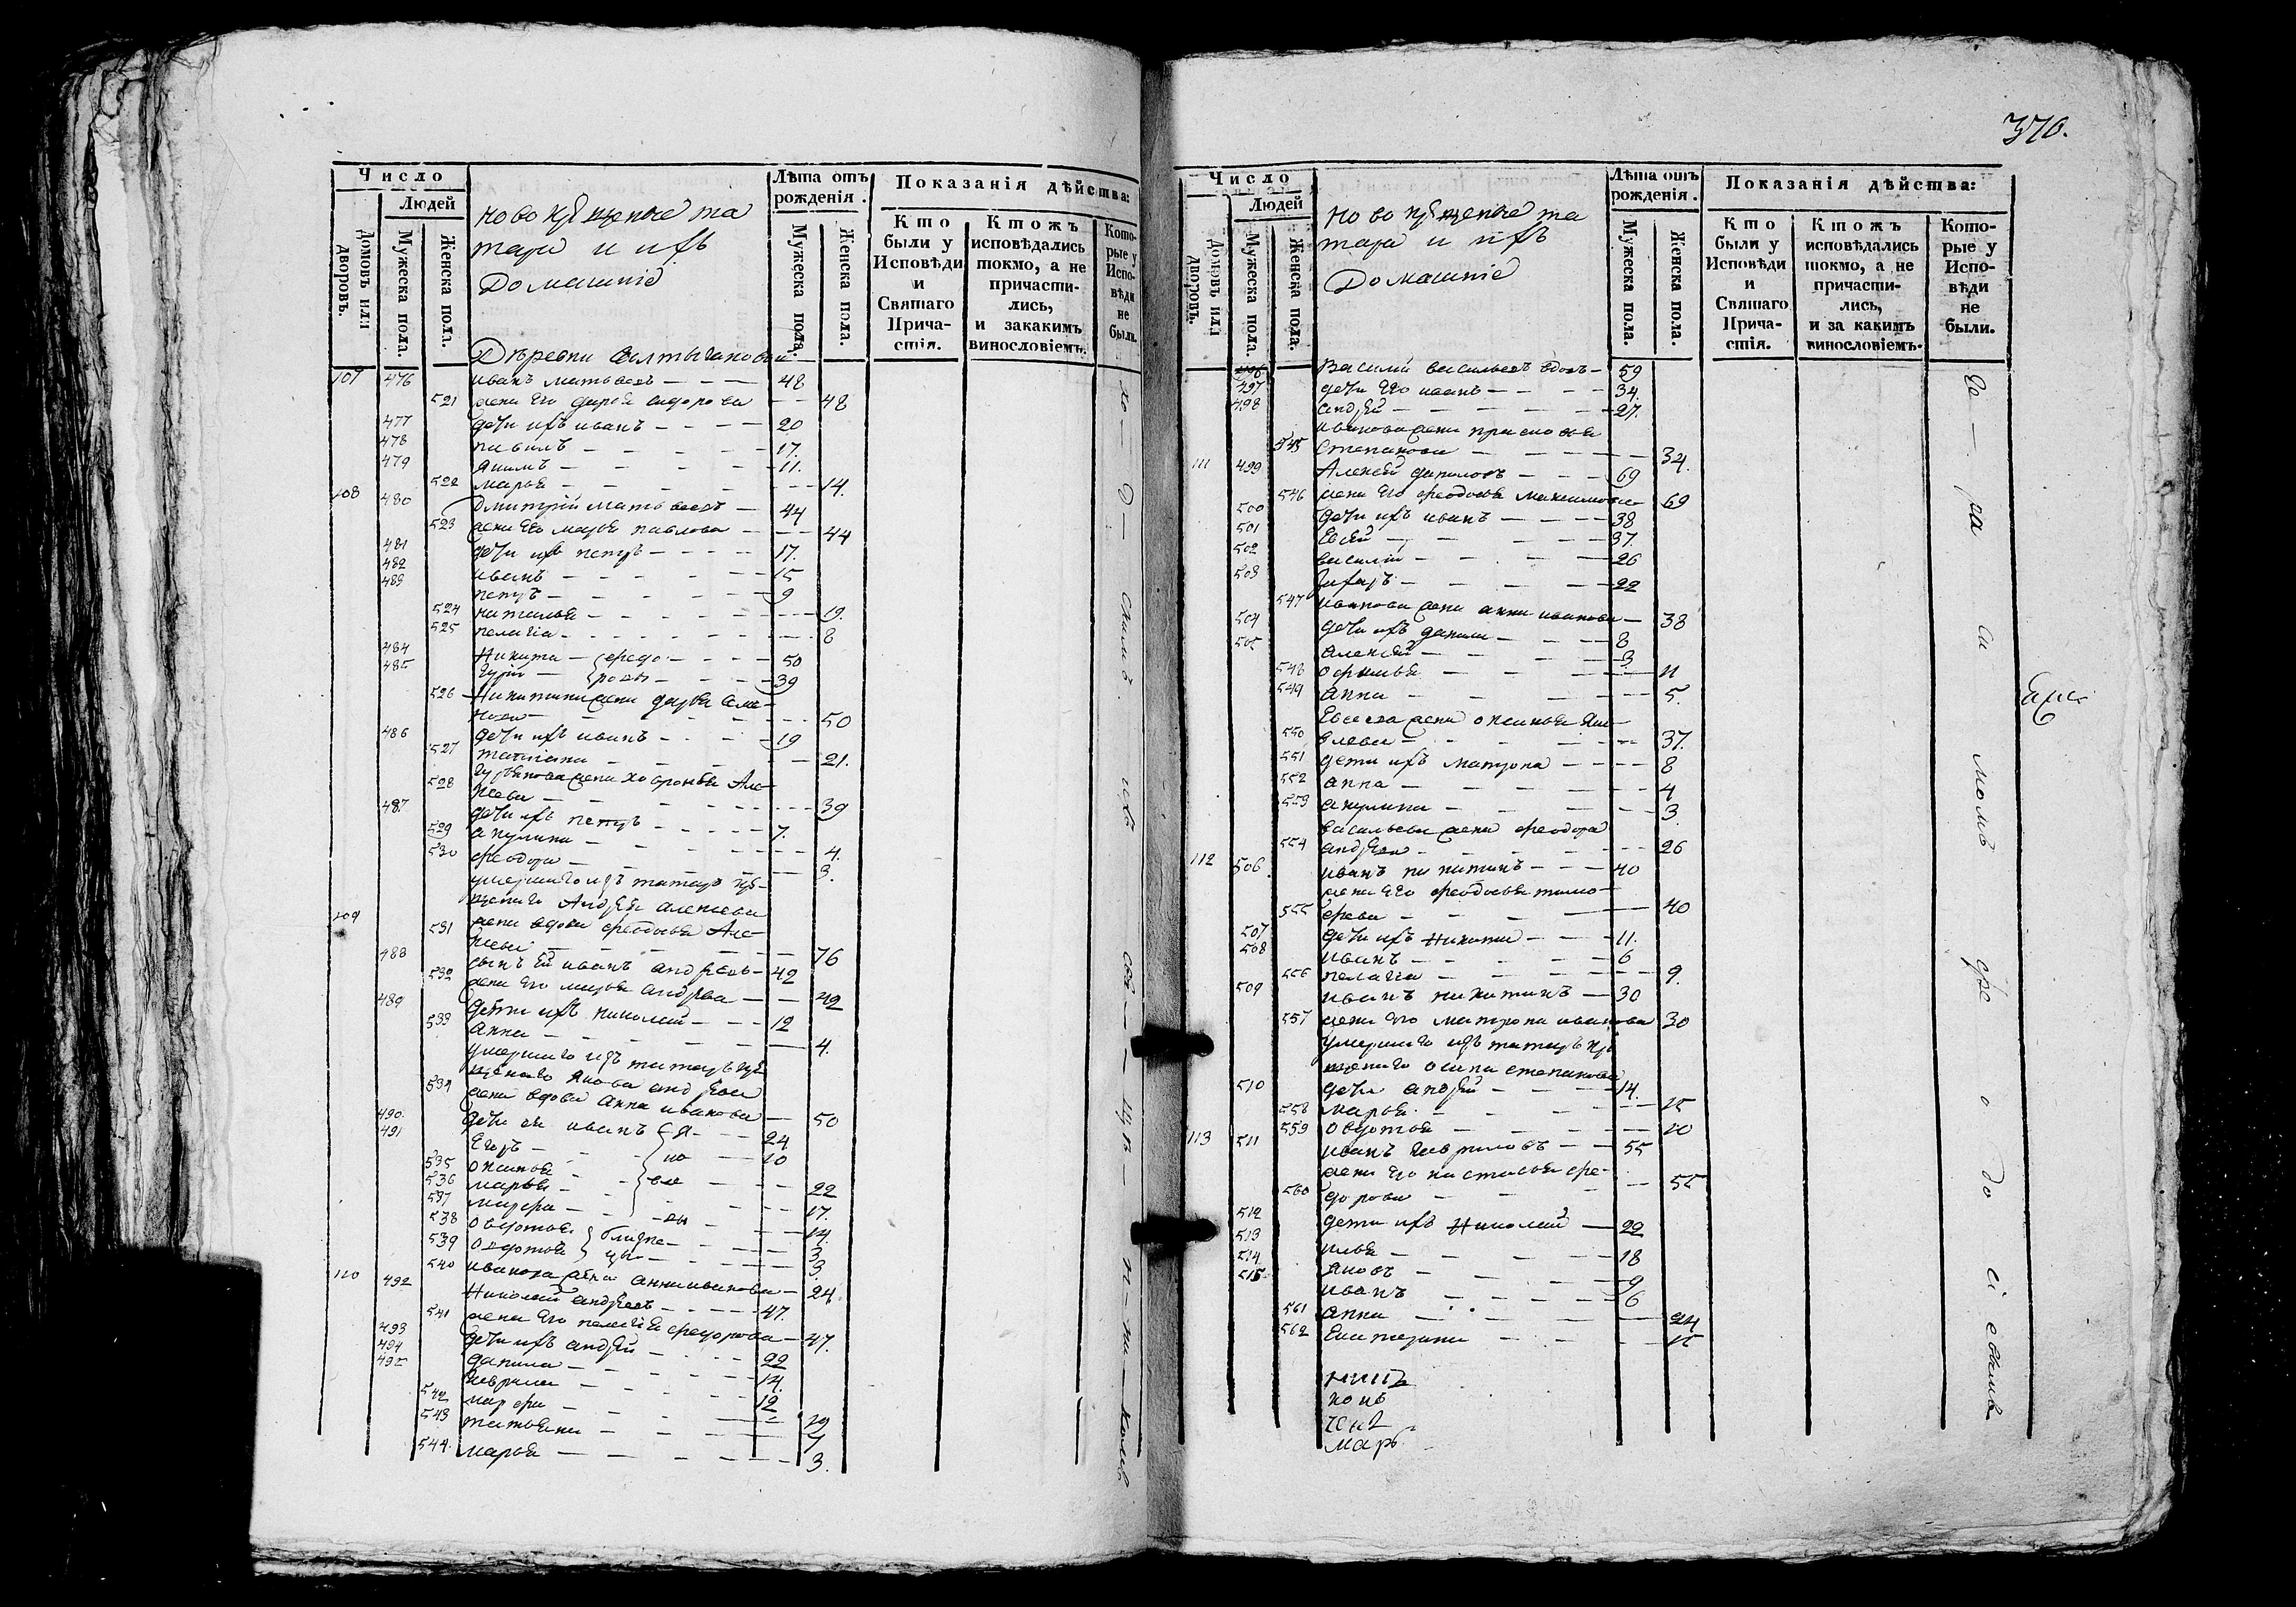 Число
Людей
Домовъ или дворовъ.
Мужеска пола.
Женска пола.
новокрещеные та
тара и ихъ
Домашніе
Лѣта отъ рожденія.
Мужеска пола.
Женска пола.
Показанія дѣйства:
Кто были у Исповѣди и Святаго Причастія.
Ктожъ исповѣдались токмо, а не причастились, и закакимъ винословіемъ.
Которые у Исповѣди не были.
Деревни
107 476 иванъ матвеевъ — 48
521 жена его дарья сидорова — 48
477 дети ихъ иванъ — 20
478 павилъ — 17.
479 якимъ — 11.
522 марья — 14.
108 480 Дмитрій матвеевъ — 44
523 жена его марья павлова — 44
481 дети ихъ петръ — 17.
482 иванъ — 15
483 петръ — 9
524 наталья — 19.
525 пелагіа — 8
484 Никита — федо — 50
485 гурій — ровы — 39
526 Никитина жена дарья семе
нова — 50
486 дети ихъ иванъ — 19
527 татіана — 21.
528 гурьянова жена ховронья Але
ксева — 39
487. дети ихъ петръ — 7.
529 акулина — 4.
530 феодора — 3.
умершаго изъ татаръ кре
щенаго Андрея алексева
109 531 жена вдова феодосья Але
ксева — 76
488 сынъ ей иванъ андреевъ — 42
532 жена его марья андреева — 42
489 дети ихъ николай — 12
533 анна — 4.
умершаго изъ татаръ кре
щенаго якова андреева
534 жена вдова анна иванова — 50
490. дети ея иванъ я — 24
491 Егоръ — ко — 10
535 оксинья — вле — 22
536 марья — 17.
537 марфа — вы — 14.
538 овдотья близне — 3
539 овдотья цы — 3.
540 иванова жена анна иванова — 24
110 492 Николай андреевъ — 47.
541 жена его пелагія федорова — 47.
493 дети ихъ андрей — 22
494 данила — 14.
495 гаврила — 12
542 марфа — 19
543 татьяна — 7
544. марья — 3.
370.
Число
Людей
Домовъ или дворовъ.
Мужеска пола.
Женска пола.
новокрещеные та
тара и ихъ
Домашніе
Лѣта отъ рожденія.
Мужеска пола.
Женска пола.
Показанія дѣйства:
Кто были у Исповѣди и Святаго Причастія.
Ктожъ исповѣдались токмо, а не причастились, и за какимъ винословіемъ.
Которые у Исповѣди не были.
496 Василій васильевъ вдовъ — 59
497 дети его иванъ — 34.
498 андрей — 27.
иванова жена прасковья
545 степанова — 34.
111 499 Алексей даниловъ — 69
546 жена его феодосья максимова — 69
500 дети ихъ иванъ — 38
501 Евсей — 37.
502 василій — 26
503 захаръ — 22
547 иванова жена анна иванова — 38
504 дети ихъ данила — 8
505 алексей — 3.
548 офимья — 11
549 анна — 5.
Евсеева жена оксинья яко
550 влева — 37.
551 дети ихъ матрона — 8
552 анна — 4
553 акулина — 3.
васильева жена феодора
554 андреева — 26
112 506. иванъ никитинъ — 40
жена его феодосья тимо
555 феева — 40
507 дети ихъ Никита — 11.
508 иванъ — 6
556 пелагіа — 9.
509 иванъ никитинъ — 30
557 жена его матрона иванова 30
умершаго изъ татаръ кре
щенаго осипа степанова
510 дети андрей — 14.
558 марья — 15
559 овдотья — 10
113 511 иванъ гавриловъ — 55
жена его настасья фе
560 дорова — 55
512 дети ихъ Николай — 22
513 илья — 18
514 яковъ — 9
515 иванъ — 6
561 анна — 24
562 Екатерина — 15